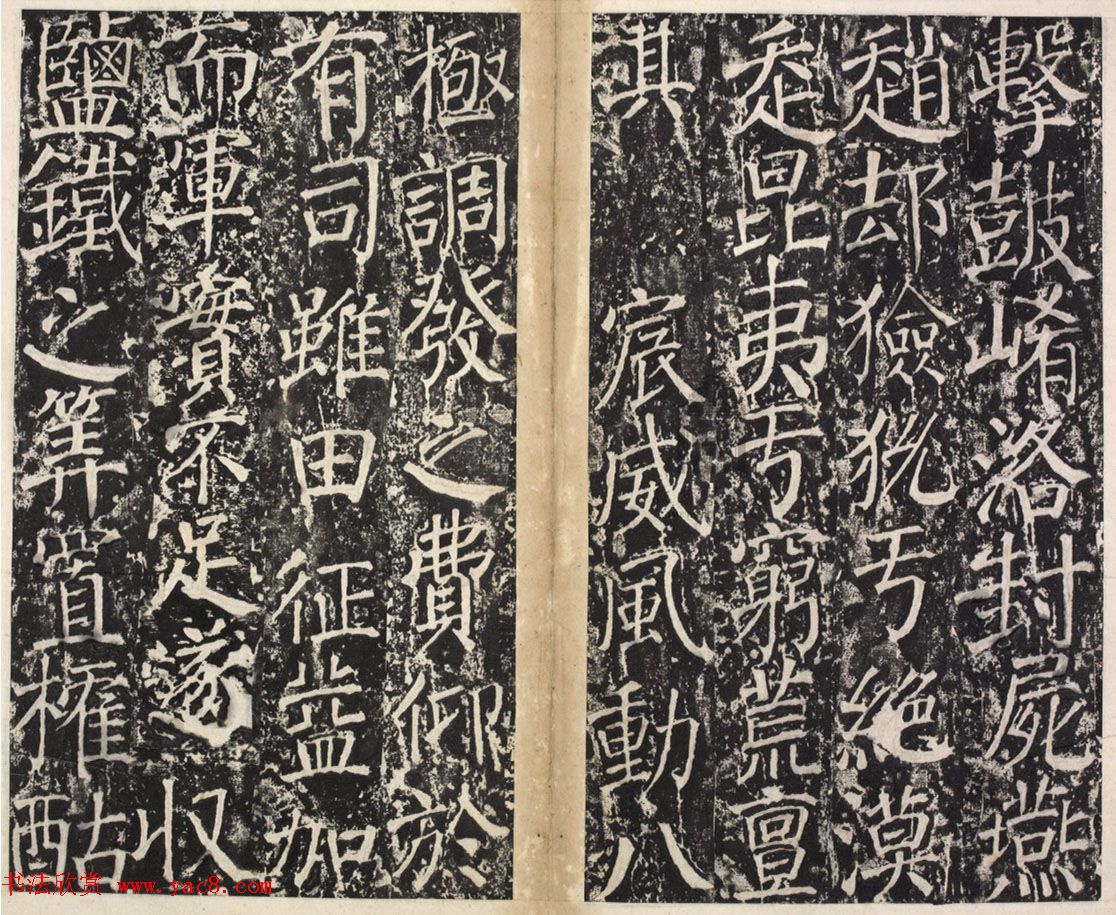 擊鼓崤洛封屍燕
趙却獫狁于絶漠
走昆夷于窮荒亶
其 宸威風動八
極調發之費仰於
有司雖田征益加
而軍實不足遂收
鹽鐵之筭置榷酤
书法欣赏 www.yac8.com